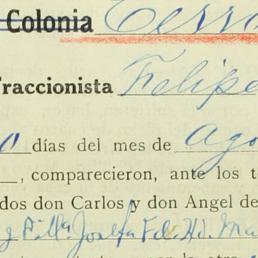 Colonia Cerro
raccionista Felipe
o días del mes de Ago
, comparecieron, ante los t
dos don Carlos y don Angel de
Josefa F. d. H. d. Ma